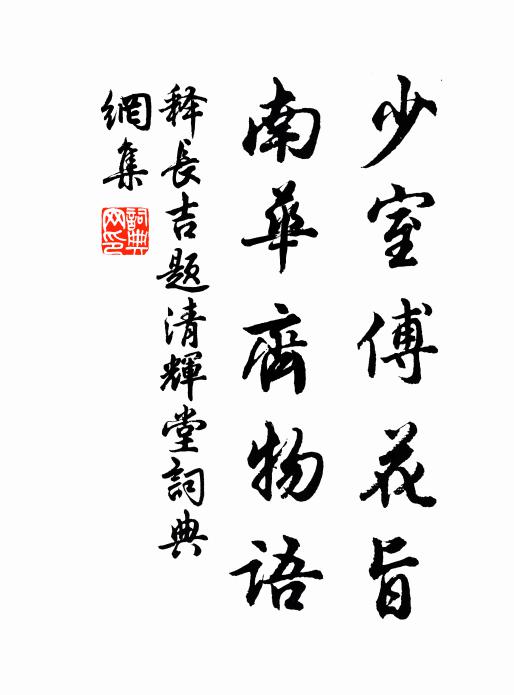 少室傳花旨
南華齊物語
释長吉題清輝堂詞典
網集
詞典
网印